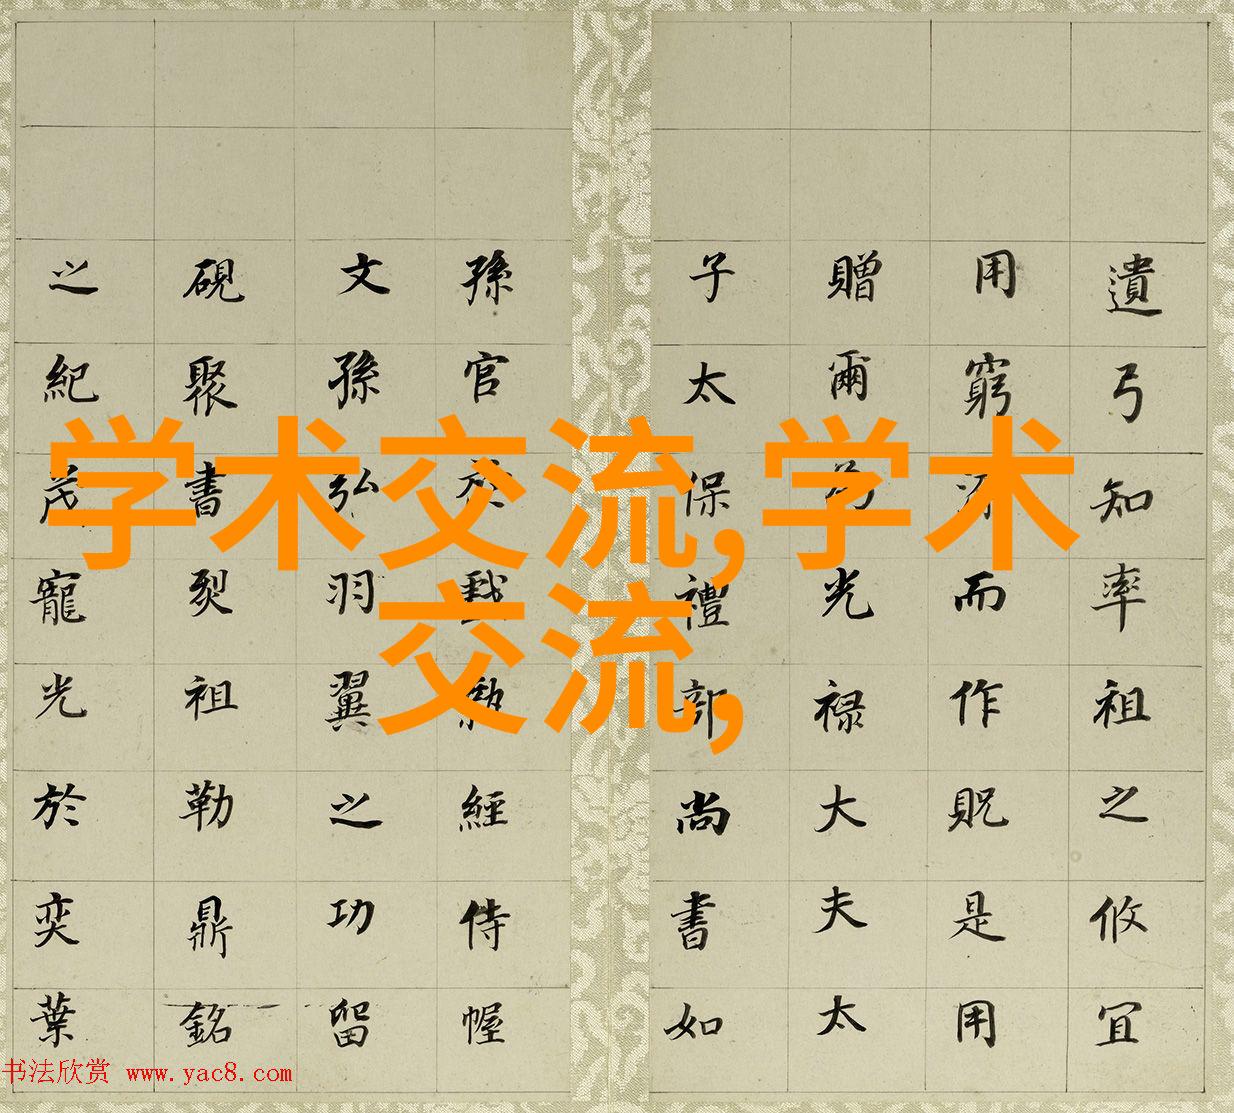 遺弓知率祖之攸宜
用窮而作貺是用
贈爾光禄大夫太
子太保禮部尚書如
孫官於經侍幄
文孫弘羽翼之功留
硯聚書烈祖勒鼎銘
之紀茂寵光於奕葉
学术交流,学术
交流,
书法欣赏 www.yac8.com